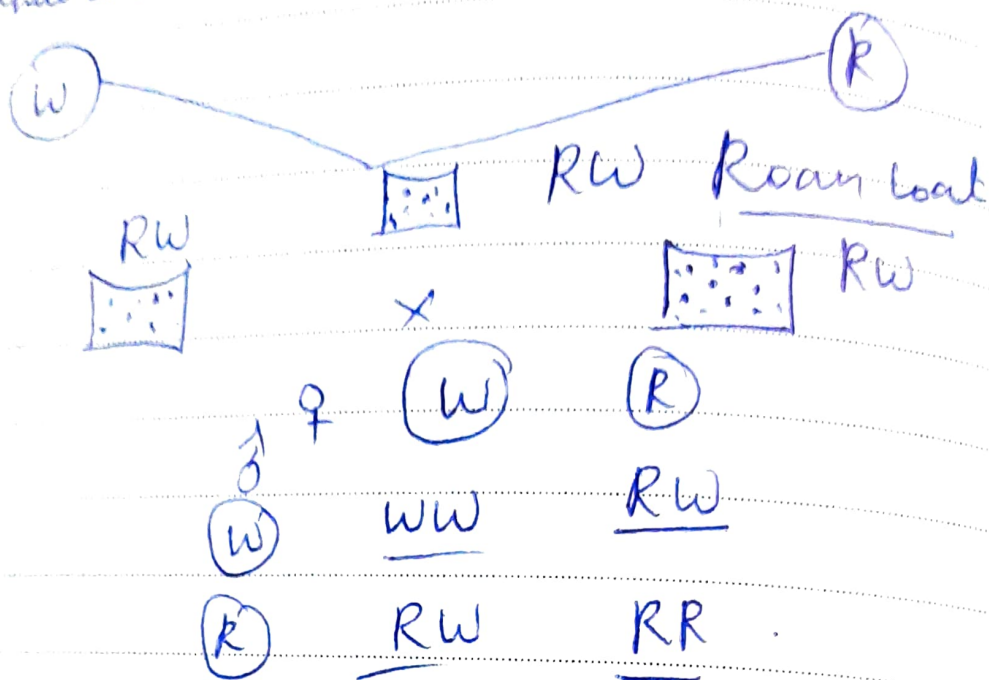 W R
RW Roan Coat
RW RW
×
♀ W R
♂
W WW RW
R RW RR